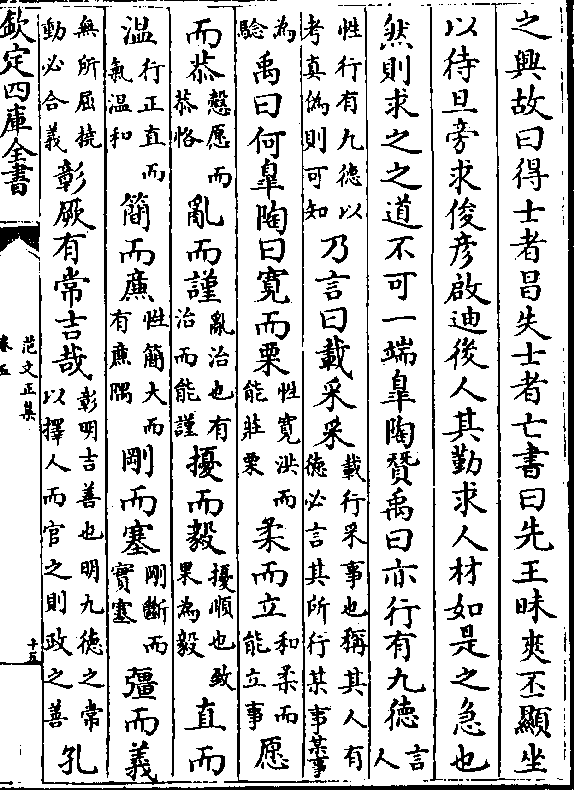 之興故曰得士者昌失士者亡書曰先王昧爽丕顯坐
以待旦旁求俊彦啟迪後人其勤求人材如是之急也
然則求之之道不可一端臯陶贊禹曰亦行有九德言人
性行有九德以考真偽則可知乃言曰載采采載行采事也稱其人有德必言其所行某事某事
為驗禹曰何臯陶曰寛而栗性寛洪而能莊栗柔而立和柔而能立事愿
而恭慤愿而恭恪亂而謹亂治也有治而能謹擾而毅擾順也致果為毅直而
温行正直而氣温和簡而亷性簡大而有亷隅剛而塞剛斷而實塞彊而義
無所屈撓動必合義彰厥有常吉哉彰明吉善也明九德之常以擇人而官之則政之善孔
欽定四庫全書
范文正集
卷五
十五